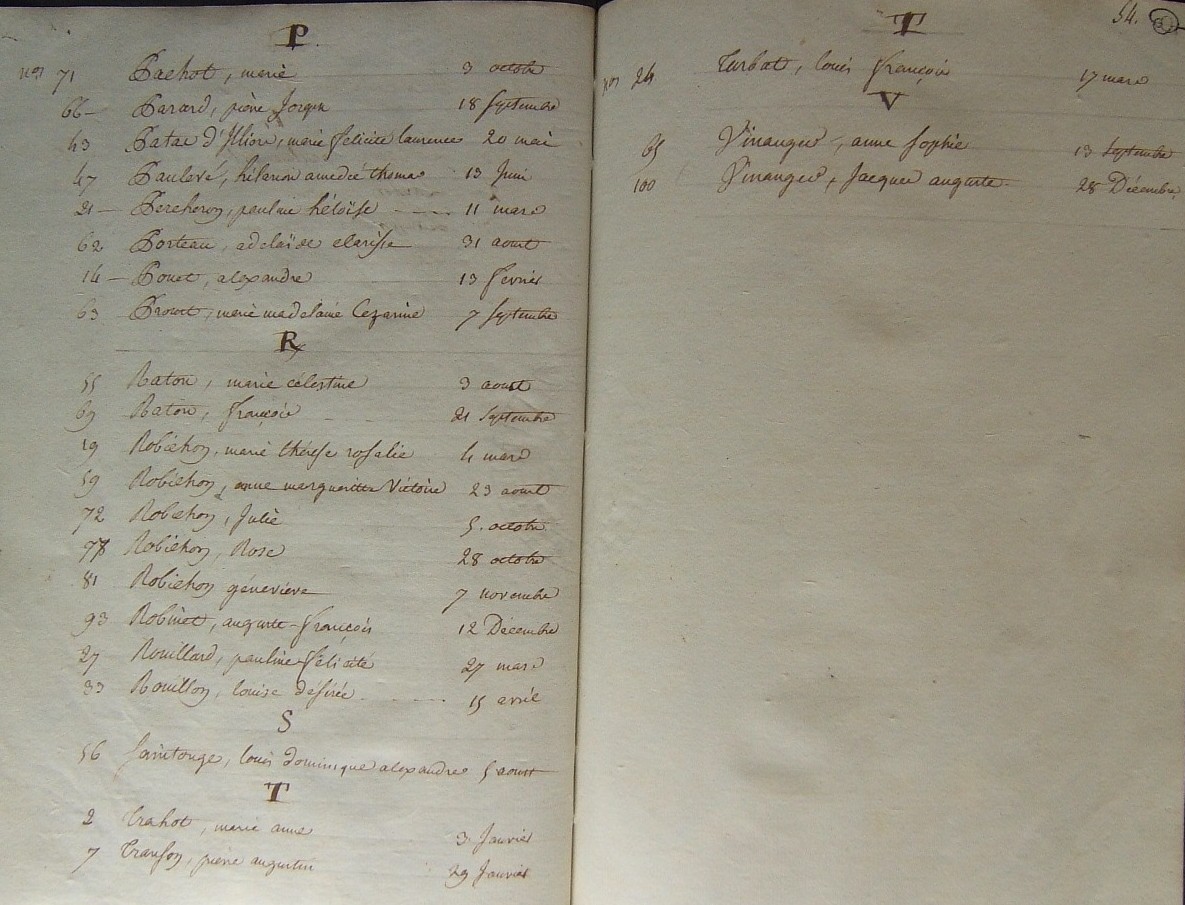 P
nos 71 Pachot, marie 3 octobre
66 - Parard, pierre 18 Septembre
43 Patac d', marie félicité laurence 20 mai
47 Paulevé, hilarion amedé thomas 13 Juin
21 - Percheron, pauline héloïse 11 mars
62 Porteau, adelaïde clarisse 31 aout
14 - Pouet, alexandre 13 Fevrier
63 Prout, marie madelaine Cezarine 7 Septembre
R
55 Raton, marie célestine 3 aout
69 Raton, François 21 Septembre
19 Robichon, marie thérése rosalie 4 mars
59 Robichon, anne margueritte Victoire 23 aout
72 Robichon, Julie 5. octobre
78 Robichon, Rose 28 octobre
81 Robichon géneviéve 7 novembre
93 Robinet, auguste-François 12 Décembre
27 Rouillard, pauline Félicité 27 mars
33 Rouillon, louise désirée 15 avril
S
56 Saintonge, louis dominique alexandre 5 aout
T
2 Trahot, marie anne 3 Janvier
7 Transon, pierre augustin 29 Janvier
54.
T
nos 24 Turbat, louis François 17 mars
V
65 Vinanger, anne Sophie 13 Septembre
100 Vinanger, Jacques auguste 28 Décembre